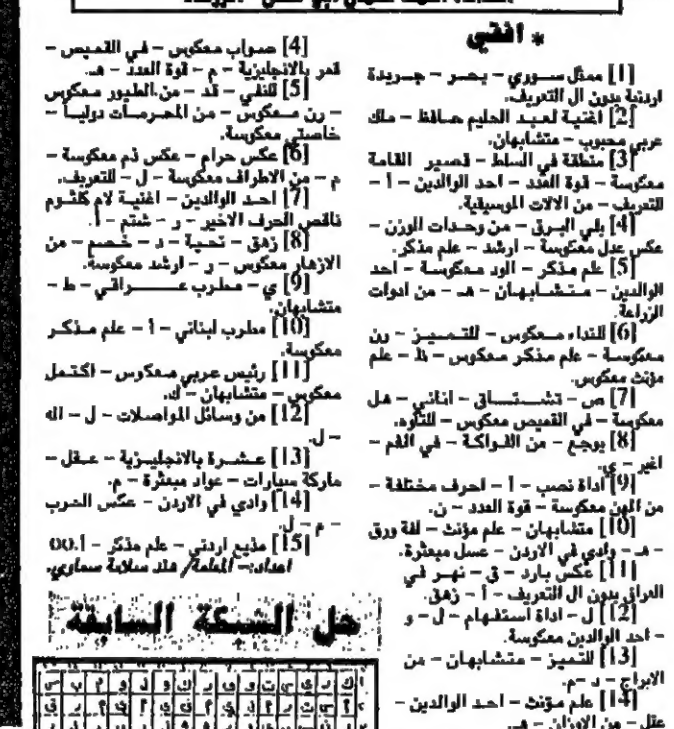 * افقي
[1] ممثل سوري - بحر - جريدة
اردنية بدون ال التعريف.
[2] اغنية لعبد الحليم حافظ - ملك
عربي محبوب - متشابهان.
[3] منطقة في السلط - قصير القامة
معكوسة - قوة العدد - احد الوالدين - أ -
للتعريف - من الالات الموسيقية.
[4] يلي البرق - من وحدات الوزن -
عكس عدل معكوسة - ارشد - علم مذكر.
[5] علم مذكر - الود معكوسة - احد
الوالدين - متشابهان - هـ - من ادوات
الزراعة.
[6] للنداء معكوس - للتمييز - رن
معكوسة - علم مذكر معكوس - ظ - علم
مؤنث معكوس.
[7] ص - تشتاق - اناني - هل
معكوسة - في القميص معكوس - للتأوه.
[8] يوجع - من الفواكة - في الفم -
اغير - ي.
[9] اداة نصب - أ - احرف مختلفة -
من المهن معكوسة - قوة العدد - ن.
[10] متشابهان - علم مؤنث - لفة ورق
- هـ - وادي في الاردن - عسل مبعثرة.
[11] عكس بارد - ق - نهر في
العراق بدون ال التعريف - أ - زهق.
[12] ل - اداة استفهام - ل - و
- احد الوالدين معكوسة.
[13] للتميز - متشابهان - من
الابراج - د - م.
[14] علم مؤنث - احد الوالدين -
عقل - من الاوزان - هـ.
[4] صواب معكوس - في القميص -
قدر بالانجليزية - م - قوة العدد - هـ.
[5] للنفي - قد - من الطيور معكوس
- رن معكوس - من المحرمات دولياً -
خاصتي معكوسة.
[6] عكس حرام - عكس ذم معكوسة -
م - من الاطراف معكوسة - ل - للتعريف.
[7] احد الوالدين - اغنية لام كلثوم
ناقص الحرف الاخير - ر - شتم - أ.
[8] زهق - تحية - د - خصم - من
الازهار معكوس - ر - ارشد معكوسة.
[9] ي - مطرب عراقي - ط -
متشابهان.
[10] مطرب لبناني - أ - علم مذكر
معكوسة.
[11] رئيس عربي معكوس - اكتمل
معكوس - متشابهان - ك.
[12] من وسائل المواصلات - ل - اله
- ل.
[13] عشرة بالانجليزية - عقل -
ماركة سيارات - عواد مبعثرة - م.
[14] وادي في الاردن - عكس الشرب
- م - ل.
[15] مذيع اردني - علم مذكر - 00.أ
اعداد:- المعلمة/ هند سلامة سماوي.
حل الشبكة السابقة